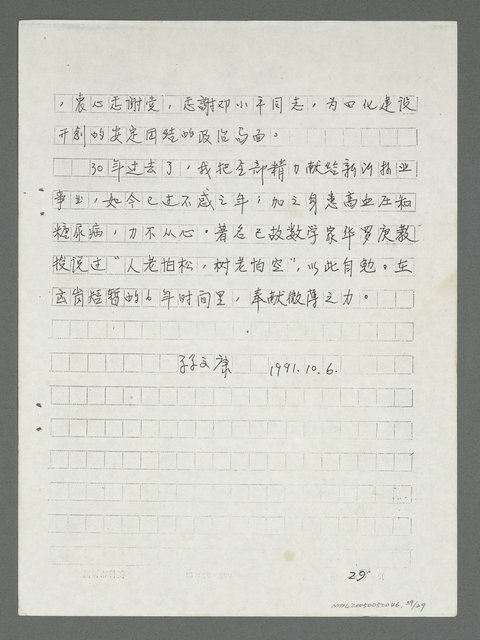 ，衷心感謝党，感謝邓小平同志，为四化建设
开創的安定団结的政治局面。
30年过去了，我把全部精力献给新
事业，如今已过不惑之年；加之身患高血压和
糖尿病，力不从心。著名已故数学家华罗庚教
授说过“人老怕松，树老怕空”，以此自勉。在
离岗短暂的6年时间里，奉献微薄之力。
孙文康 1991.10.6.
29
NMTL20050050046. 29/29